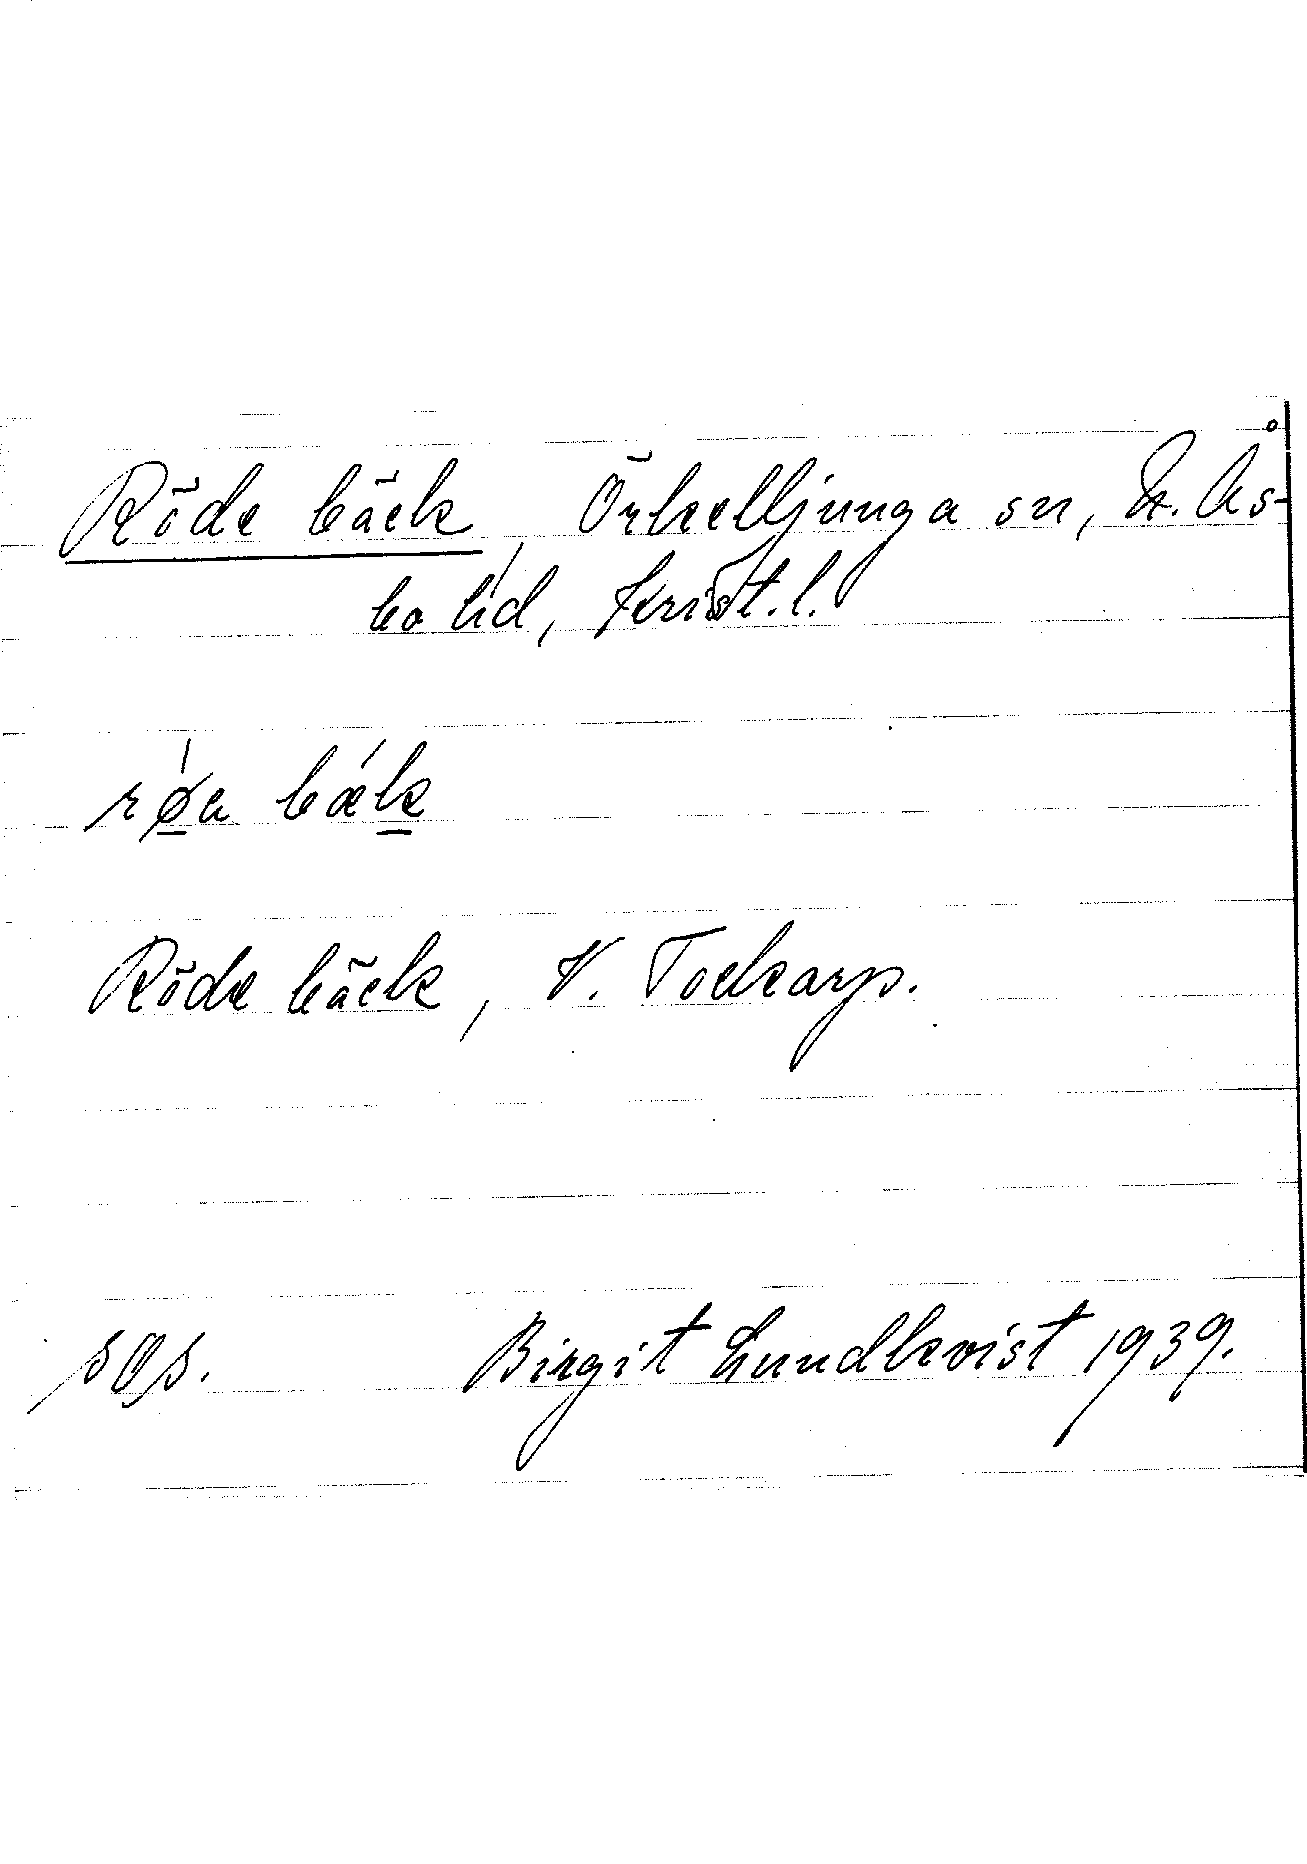 Röde bäck, Örkelljunga sn, N. Ås-
bo hd, Krist. l.
rǿa bǽk
Röde bäck, V. Tockarp.
sOs. Birgit Lundkvist 1939.